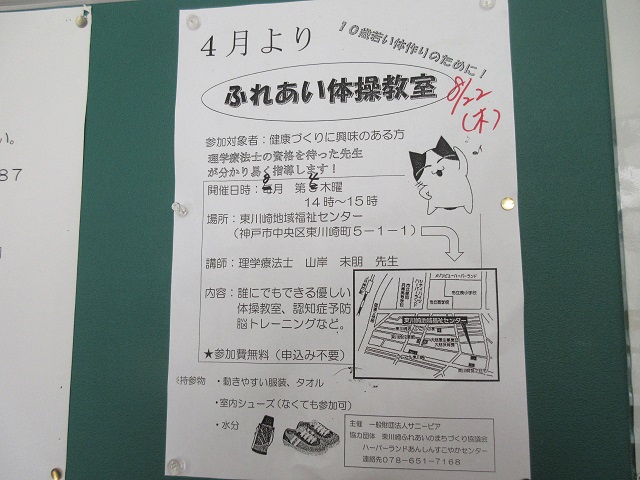 4月より
10歳若い体作りのために！
ふれあい体操教室
8/22
(木)
参加対象者：健康づくりに興味のある方
理学療法士の資格を持った先生
が分かり易く指導します！
開催日時：8月 第4木曜
14時～15時
場所：東川崎地域福祉センター
（神戸市中央区東川崎町5－1－1）
講師：理学療法士 山岸 未朋 先生
内容：誰にでもできる優しい
体操教室、認知症予防
脳トレーニングなど。
東川崎地域福祉センター
★参加費無料（申込み不要）
持参物 ・動きやすい服装、タオル
・室内シューズ（なくても参加可）
・水分
主催 一般財団法人サニーピア
協力団体 東川崎ふれあいのまちづくり協議会
ハーバーランドあんしんすこやかセンター
連絡先078-651-7168
い。
87